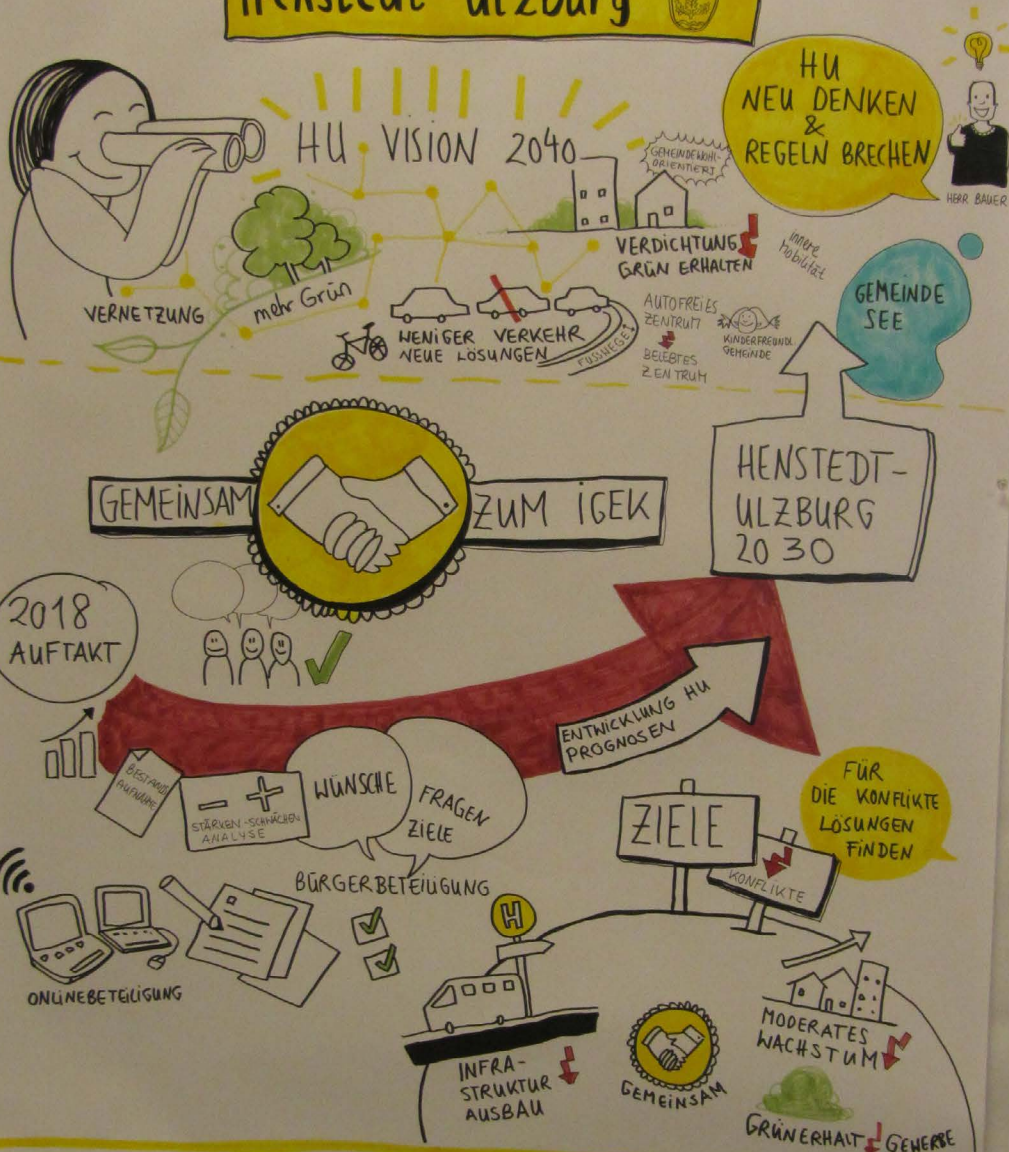 Henstedt Ulzburg
HU
NEU DENKEN
&
REGELN BRECHEN
HERR BAUER
HU VISION 2040
GEMEINDEWOHL-
ORIENTIERT
VERDICHTUNG
GRÜN ERHALTEN
innere
Mobilität
GEMEINDE
SEE
VERNETZUNG
mehr Grün
WENIGER VERKEHR
NEUE LÖSUNGEN
FUSSWEGE
AUTOFREIES
ZENTRUM
BELEBTES
ZENTRUM
KINDERFREUNDL.
GEMEINDE
GEMEINSAM ZUM IGEK
HENSTEDT-
ULZBURG
2030
2018
AUFTAKT
ENTWICKLUNG HU
PROGNOSEN
BESTANDS
AUFNAHME
- +
STÄRKEN-SCHWÄCHEN
ANALYSE
WÜNSCHE
FRAGEN
ZIELE
BÜRGERBETEILIGUNG
ONLINEBETEILIGUNG
ZIELE
KONFLIKTE
FÜR
DIE KONFLIKTE
LÖSUNGEN
FINDEN
H
INFRA-
STRUKTUR
AUSBAU
GEMEINSAM
MODERATES
WACHSTUM
GRÜNERHALT GEWERBE